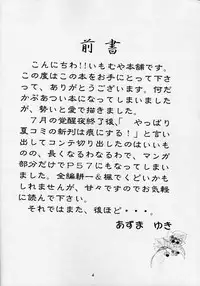 前書
こんにちわ!!いもむや本舗です。
この度はこの本をお手にとって下さ
って、ありがとうございます。何だ
かぶあつい本になってしまいました
が、勢いと愛で描きました。
7月の覚醒夜終了後、「やっぱり
夏コミの新刊は痕にする!」と言い
出してコンテ切り出したのはいいも
のの、長くなるわなるわで、マンガ
部分だけでP57にもなってしまい
ました。全編耕一&楓でくどいかも
しれませんが、甘々ですのでお気軽
に読んで下さい。
それではまた、後ほど・・・。
あずま ゆき
4